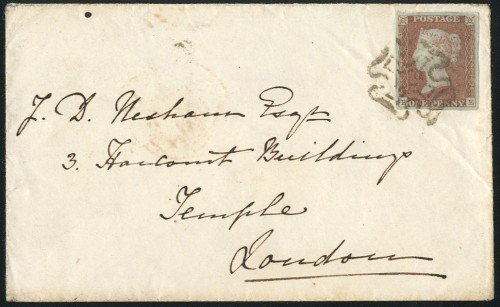 POSTAGE
ONE PENNY
J. D. Nesham Esqr
3. Harcourt Buildings
Temple
London